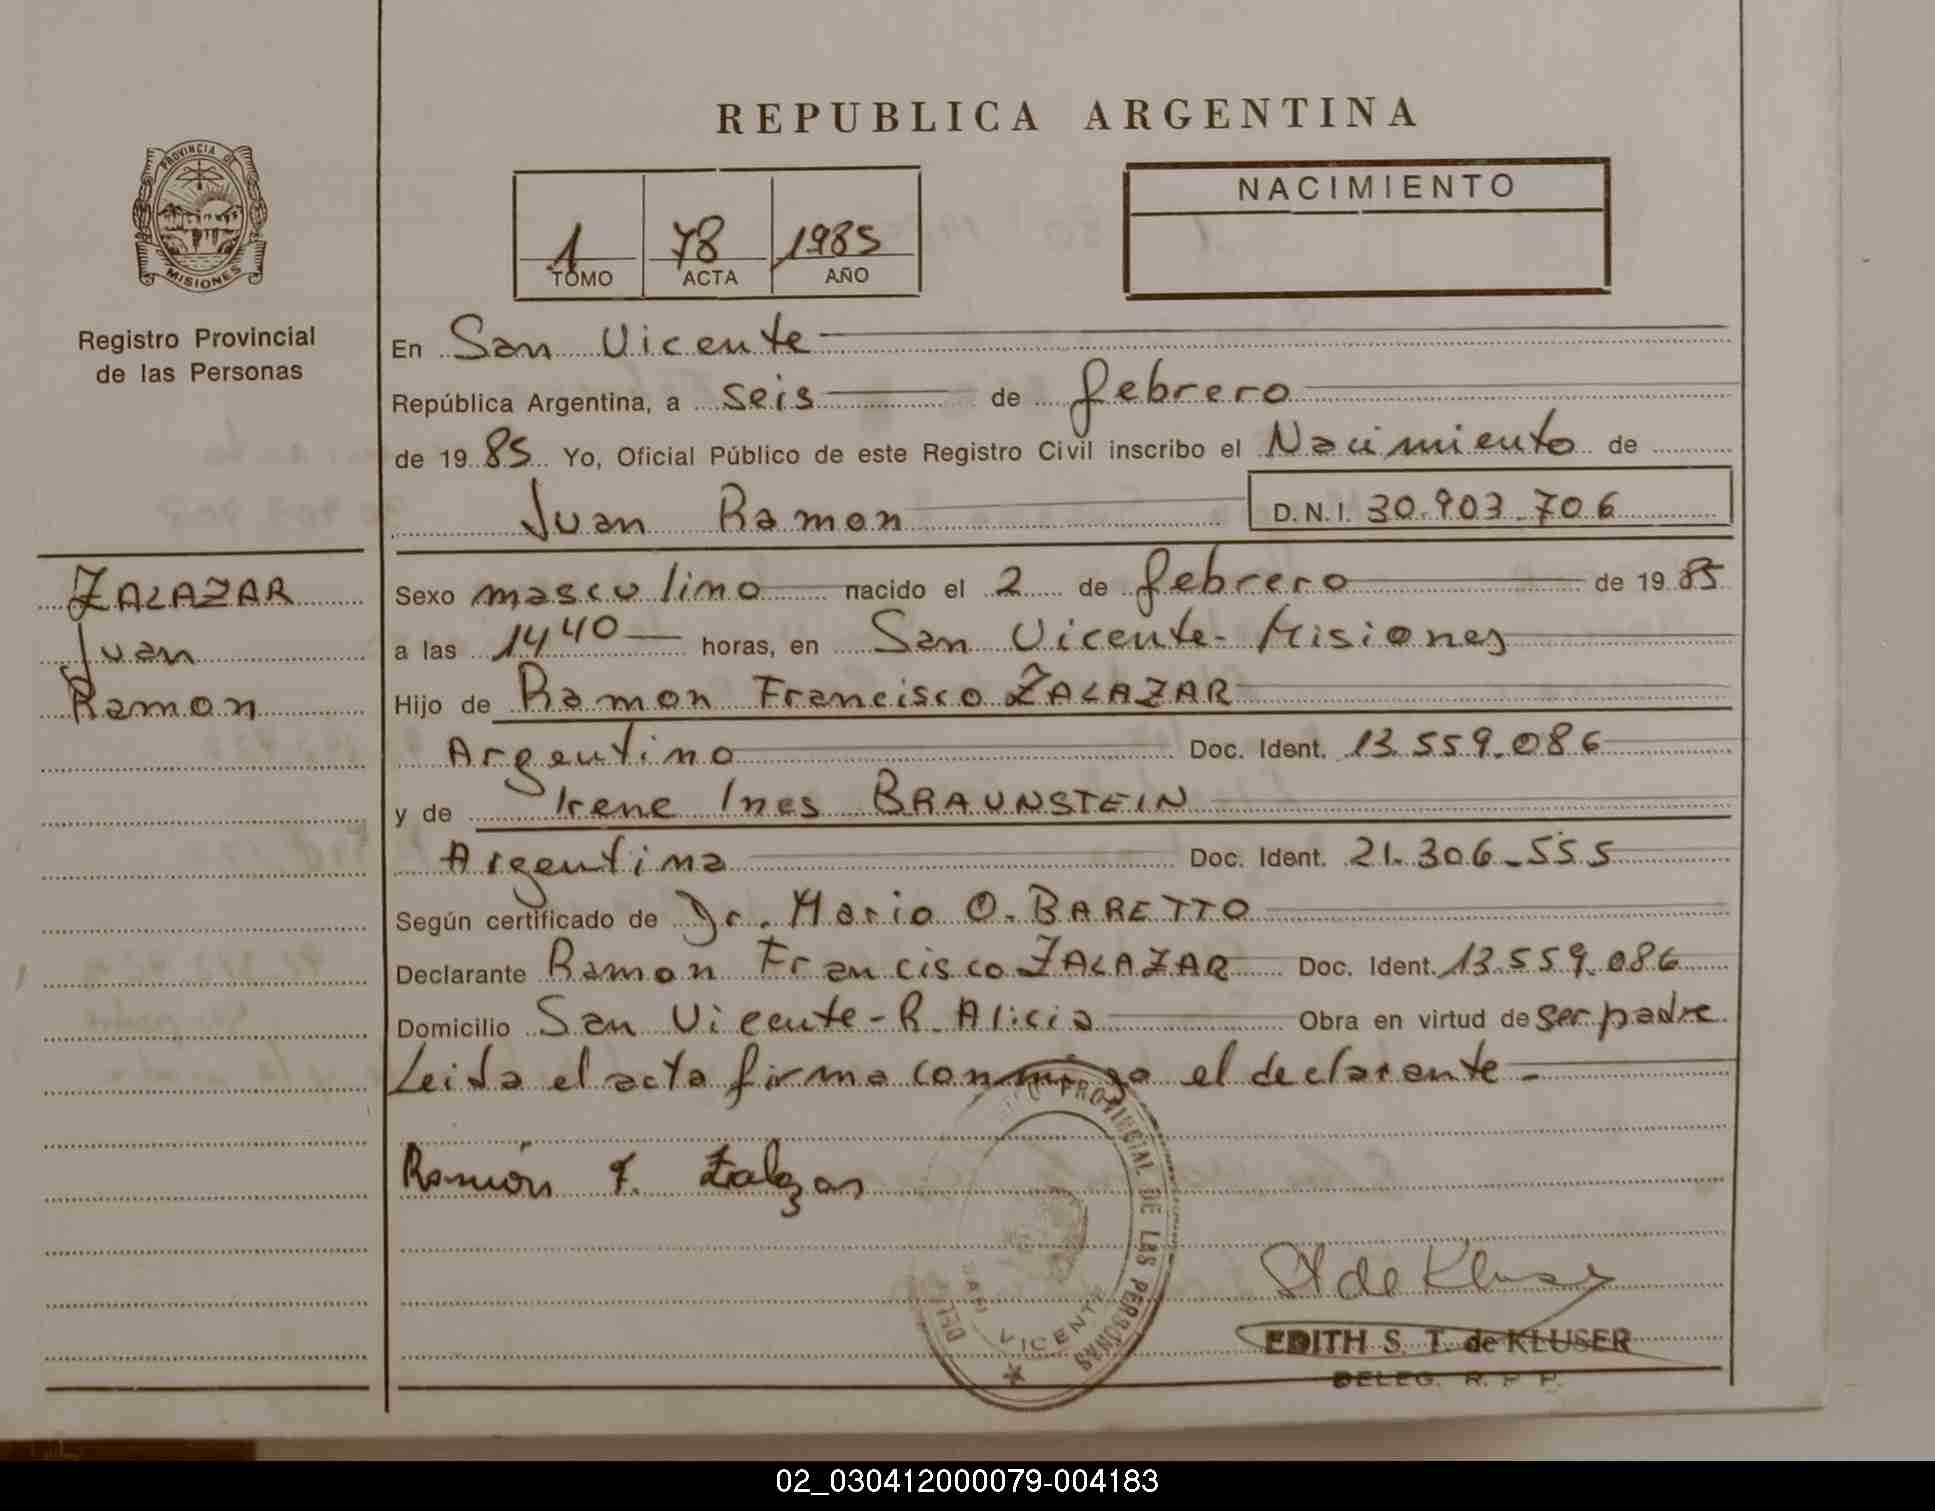 REPUBLICA ARGENTINA
PROVINCIA DE
MISIONES
Registro Provincial
de las Personas
1 78 1985
TOMO ACTA AÑO
NACIMIENTO
En San Vicente
República Argentina, a seis de febrero
de 1985 Yo, Oficial Público de este Registro Civil inscribo el Nacimiento de
Juan Ramon D.N.I. 30.903.706
ZALAZAR
Juan
Ramon
Sexo masculino nacido el 2 de febrero de 1985
a las 1440 horas, en San Vicente-Misiones
Hijo de Ramon Francisco ZALAZAR
Argentino Doc. Ident. 13.559.086
y de Irene Ines BRAUNSTEIN
Argentina Doc. Ident. 21.306.555
Según certificado de Dr. Mario O. BARETTO
Declarante Ramon Francisco ZALAZAR Doc. Ident. 13.559.086
Domicilio San Vicente-R. Alicia Obra en virtud de ser padre
Leida el acta firma conmigo el declarante-
Ramón F. Zalazar
PROVINCIAL DE LAS PERSONAS
SAN VICENTE
St de Kluser
EDITH S. T. de KLUSER
DELEG. R. P. P.
02_030412000079-004183